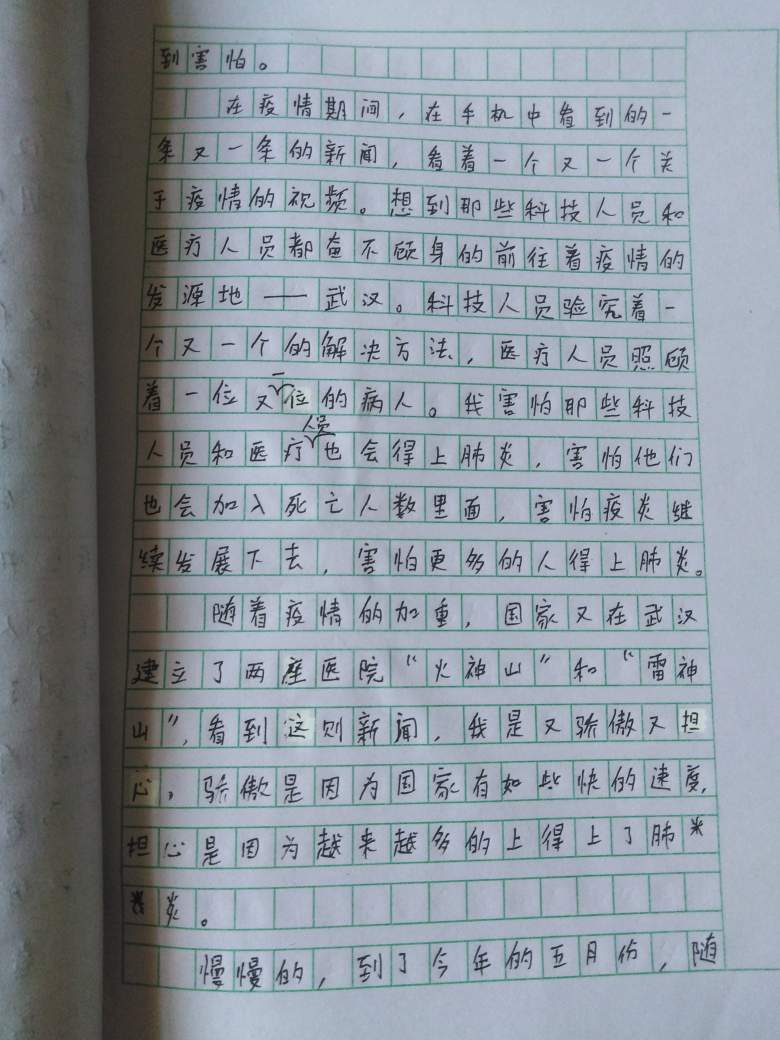 到害怕。
在疫情期间，在手机中看到的一
条又一条的新闻，看着一个又一个关
于疫情的视频。想到那些科技人员和
医疗人员都奋不顾身的前往着疫情的
发源地——武汉。科技人员验究着一
个又一个的解决方法，医疗人员照顾
着一位又一位的病人。我害怕那些科技
人员和医疗人员也会得上肺炎，害怕他们
也会加入死亡人数里面，害怕疫炎继
续发展下去，害怕更多的人得上肺炎。
随着疫情的加重，国家又在武汉
建立了两座医院“火神山”和“雷神
山”，看到这则新闻，我是又骄傲又担
心，骄傲是因为国家有如些快的速度，
担心是因为越来越多的上得上了肺
炎。
慢慢的，到了今年的五月份，随